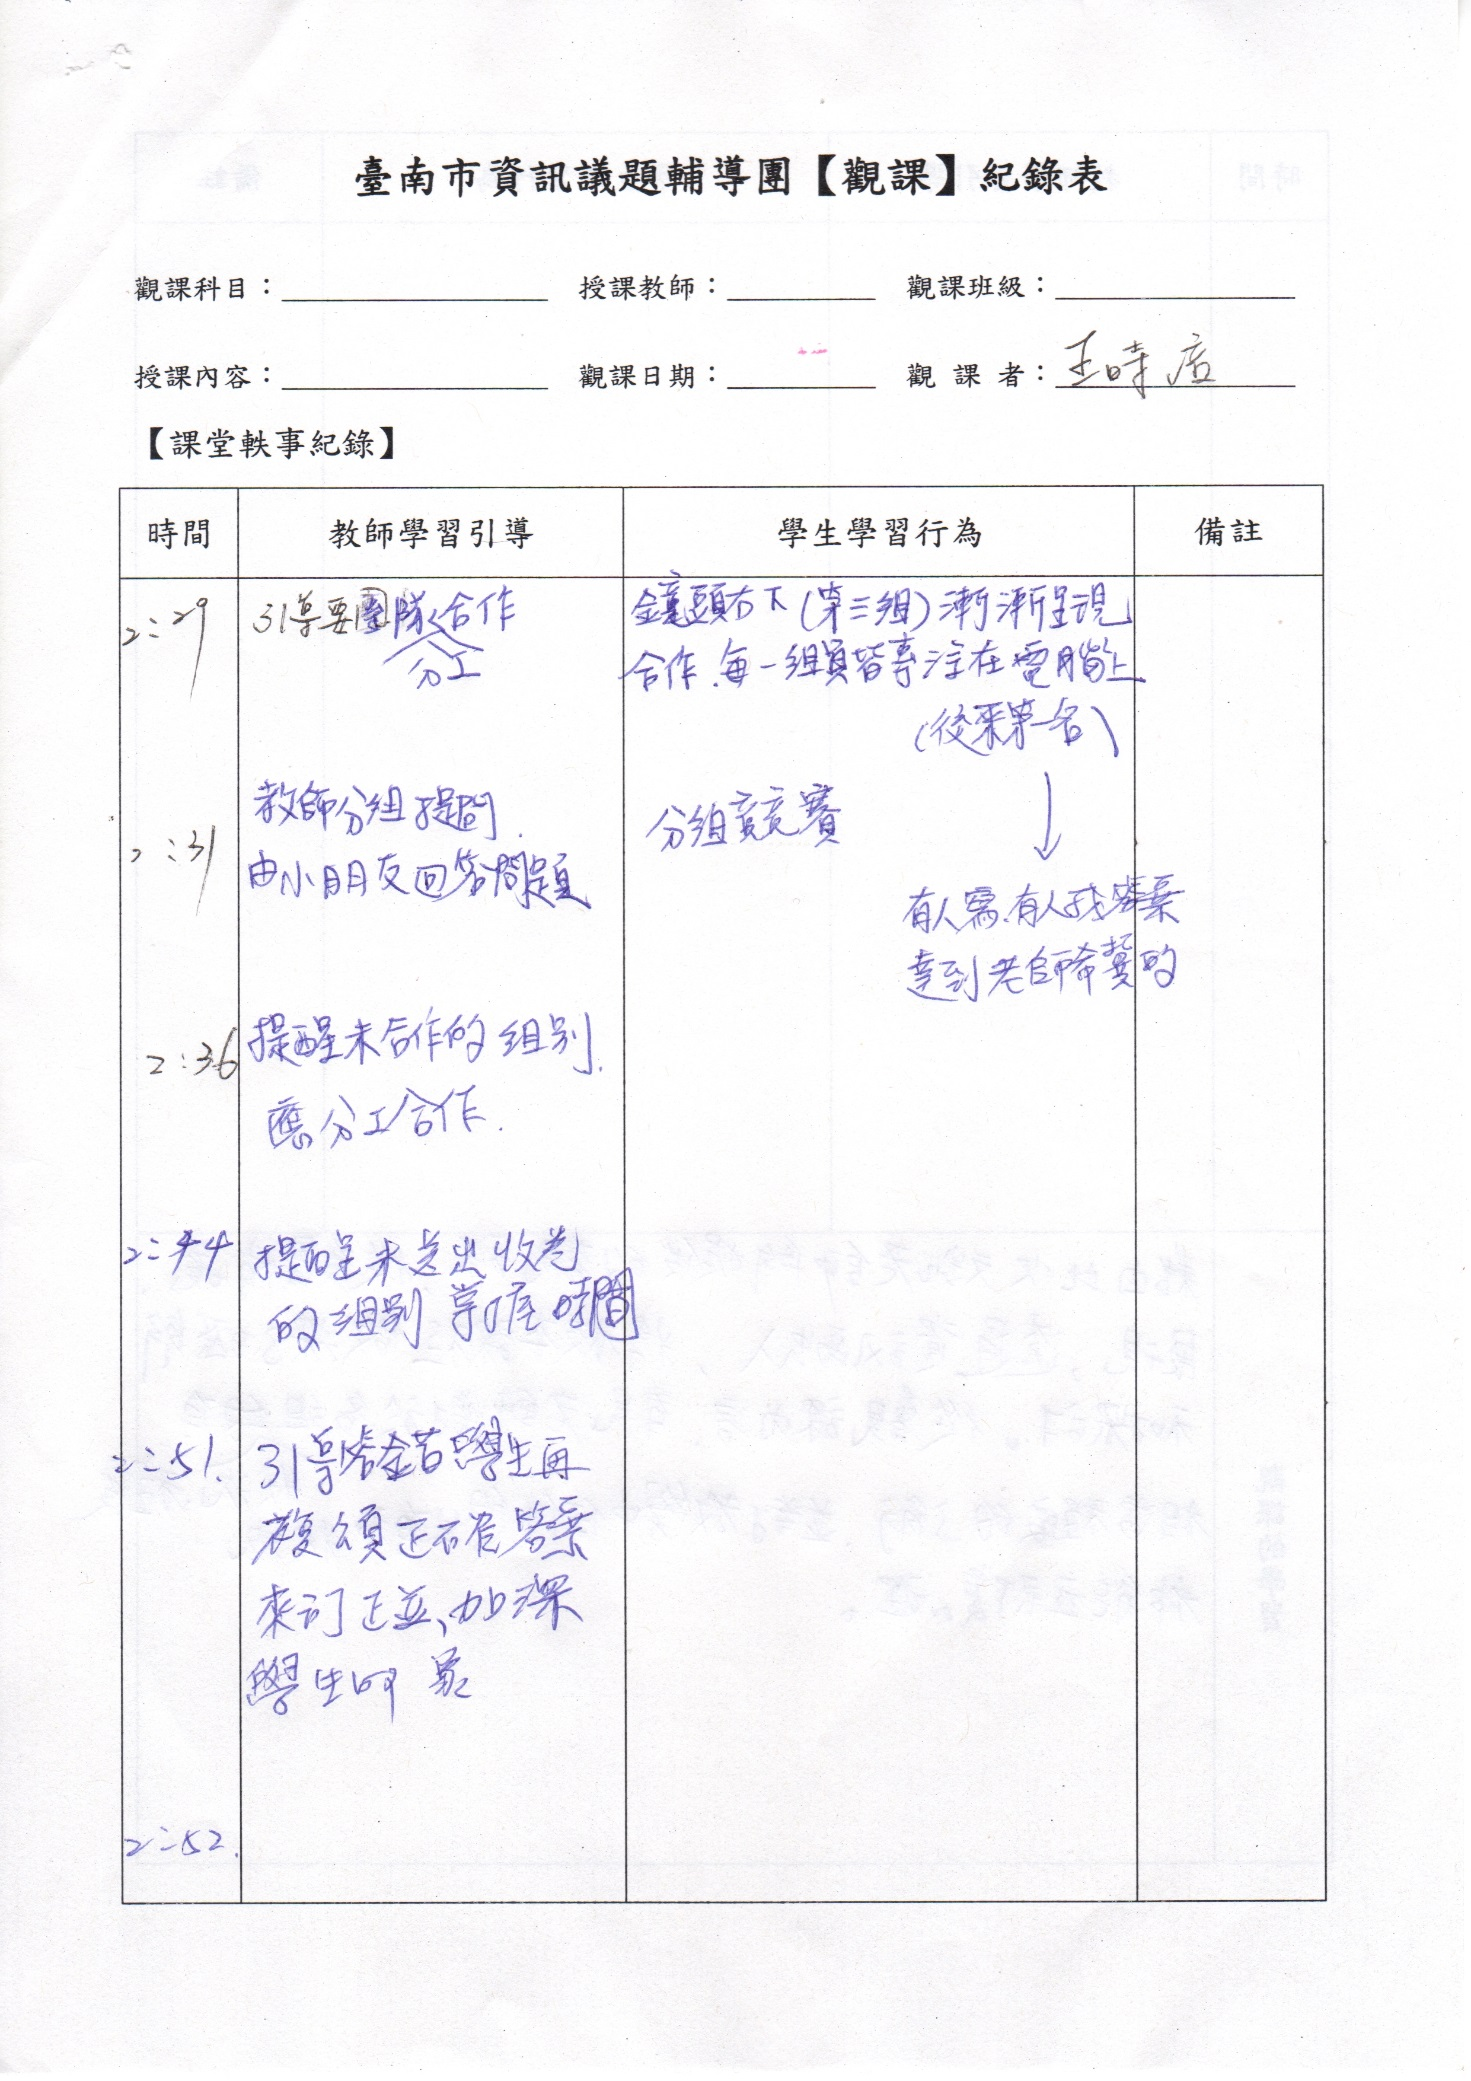 臺南市資訊議題輔導團【觀課】紀錄表
觀課科目：
授課教師：
觀課班級：
授課內容：
觀課日期：
觀課者：王時店
【課堂軼事紀錄】
時間
教師學習引導
學生學習行為
備註
2:29
引導要團隊合作
分工
鏡頭右下(第三組)漸漸呈現
合作.每一組員皆專注在電腦上
(後來第一名)
2:31
教師分組提問.
由小朋友回答問題
分組競賽
有人寫.有人找答案
達到老師希冀的
2:36
提醒未合作的組別.
應分工合作.
2:44
提醒未送出收卷
的組別掌握時間
2:51.
引導答錯學生再
複頌正確答案
來訂正並、加深
學生印象
2:52.